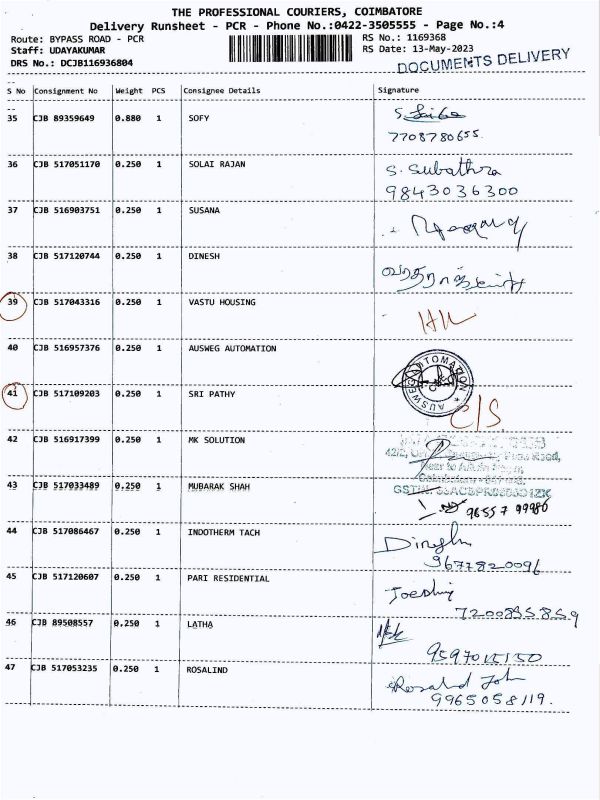 THE PROFESSIONAL COURIERS, COIMBATORE
Delivery Runsheet - PCR - Phone No.:0422-3505555 - Page No.:4
Route: BYPASS ROAD - PCR RS No.: 1169368
Staff: UDAYAKUMAR RS Date: 13-May-2023
DRS No.: DCJB116936804 DOCUMENTS DELIVERY
S No Consignment No Weight PCS Consignee Details Signature
35 CJB 89359649 0.880 1 SOFY S.
7708780655.
36 CJB 517051170 0.250 1 SOLAI RAJAN S. Subathra
9843036300
37 CJB 516903751 0.250 1 SUSANA
38 CJB 517120744 0.250 1 DINESH
39 CJB 517043316 0.250 1 VASTU HOUSING
40 CJB 516957376 0.250 1 AUSWEG AUTOMATION AUSWEG AUTOMATION
41 CJB 517109203 0.250 1 SRI PATHY C/S
42 CJB 516917399 0.250 1 MK SOLUTION
43 CJB 517033489 0.250 1 MUBARAK SHAH
44 CJB 517086467 0.250 1 INDOTHERM TACH
9677820096
45 CJB 517120607 0.250 1 PARI RESIDENTIAL
7200835859
46 CJB 89508557 0.250 1 LATHA
9597015150
47 CJB 517053235 0.250 1 ROSALIND Rosalind John
9965058119.